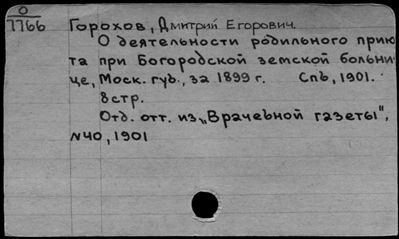 О
7766
Горохов, Дмитрий Егорович.
О деятельности родильного прию
та при Богородской земской больни
це, Моск. губ., за 1899 г. Спб, 1901.
8 стр.
Отд. отт. из „Врачебной газеты",
N40, 1901